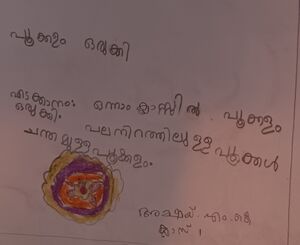 പൂക്കളം ഒരുക്കി
ഒന്നാം ക്ലാസ്സിൽ പൂക്കളം
ഒരുക്കി. പല നിറത്തിലുള്ള പൂക്കൾ
ചന്തമുള്ള പൂക്കളം.
അക്ഷയ്. എം.കെ
ക്ലാസ് 1